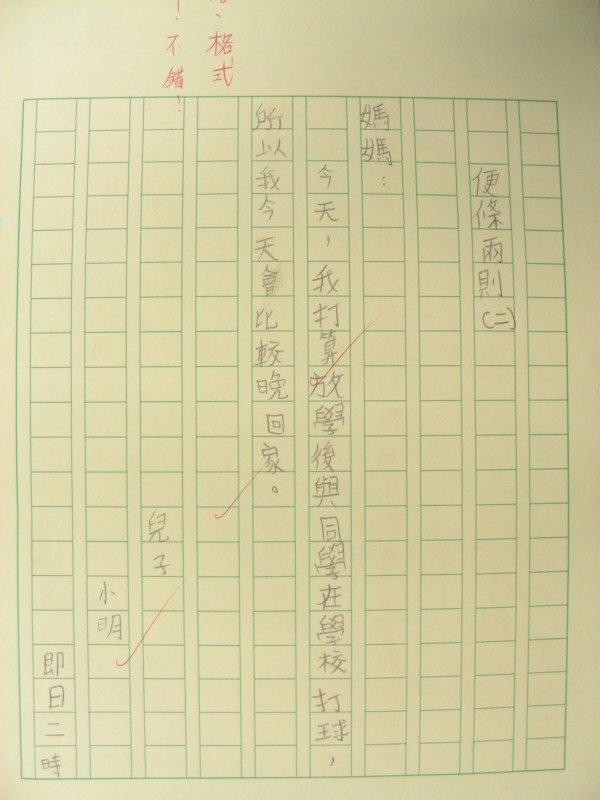 便條兩則(二)
媽媽：
今天，我打算放學後與同學在學校打球，
所以我今天會比較晚回家。
兒子
小明
即日二時
、格式
！不錯！